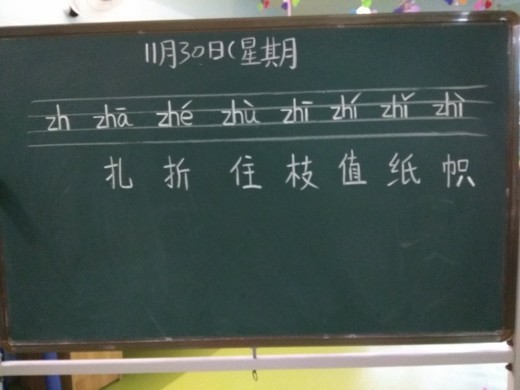 11月30日(星期月
zh zhā zhé zhù zhī zhí zhǐ zhì
扎 折 住 枝 值 纸 帜